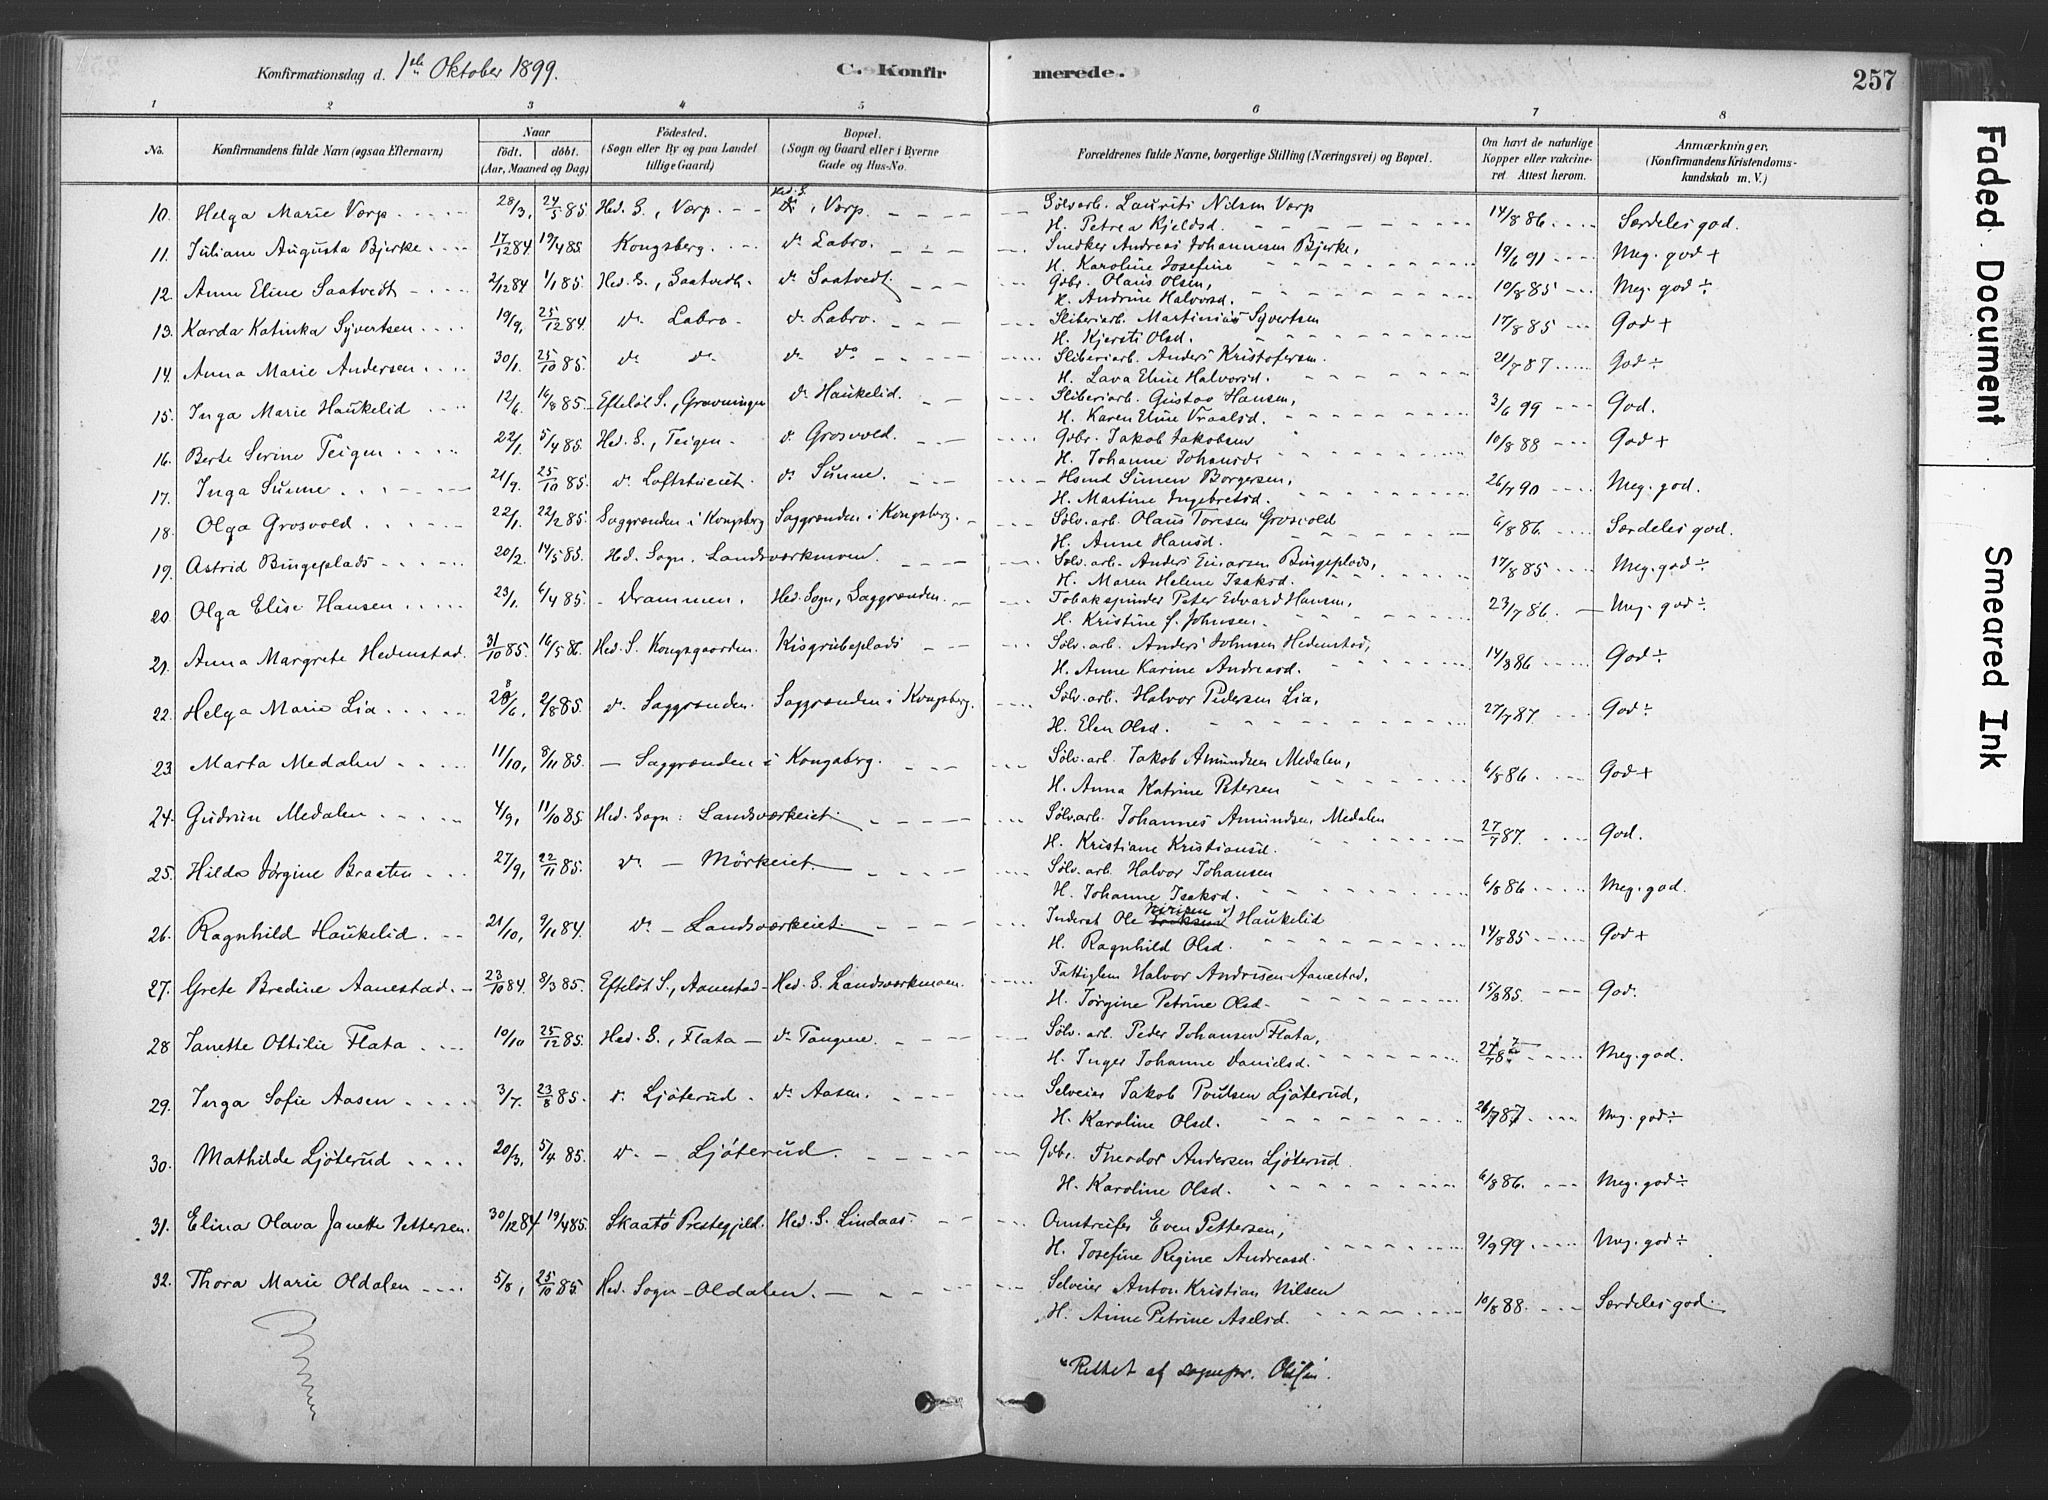 Konfirmationsdag d. 1ste Oktober 1899. C. Konfirmerede. 257
1 2 3 4 5 6 7 8
No. Konfirmandens fulde Navn (ogsaa Efternavn) Naar født. døbt. (Aar, Maaned og Dag) Fødested. (Sogn eller By og paa Landet tillige Gaard) Bopæl. (Sogn og Gaard eller i Byerne Gade og Hus-No. Forældrenes fulde Navne, borgerlige Stilling (Næringsvei) og Bopæl. Om havt de naturlige Kopper eller vakcineret. Attest herom. Anmærkninger. (Konfirmandens Kristendomskundskab m. V.)
10. Helga Marie Værp 28/3, 24/5 85. Hed. S., Værp. Hed. S., Værp. Sølvarb. Laurits Nilsen Værp 14/8 86 Særdeles god.
H. Petrea Kjeldsd.
11. Juliane Augusta Bjerke 17/12 84 19/4 85. Kongsberg. do Labro. Snedker Andreas Johannesen Bjerke, 19/6 91 Meg. god +
H. Karoline Josefine
12. Anne Eline Saatvedt 2/12 84 1/1 85. Hed. S., Saatvedt. do Saatvedt. Gbr. Olaus Olsen, 10/8 85 Meg. god ÷
H. Andrine Halvorsd.
13. Karda Katinka Syvertsen 19/9, 25/12 84. do Labro. do Labro. Sliberiarb. Martinius Syvertsen 17/8 85 God +
H. Kjersti Olsd.
14. Anna Marie Andersen 30/1. 25/10 85. do do do do Sliberiarb. Anders Kristofersen. 21/7 87 God ÷
H. Lava Eline Halvorsd.
15. Inga Marie Haukelid 12/6. 16/8 85. Efteløt S., Gravningen do Haukelid. Sliberiarb. Gustav Hansen, 3/6 99 God.
H. Karen Eline Vraalsd.
16. Berte Serine Teigen 22/1. 5/4 85. Hed. S., Teigen. do Grosvold. Gbr. Jakob Jakobsen 10/8 88 God +
H. Johanne Johansd.
17. Inga Sunne 21/9. 25/10 85. do Loftstueiet. do Sunne. Hsmd Simen Borgersen, 26/7 90 Meg. god.
H. Martine Ingebretsd.
18. Olga Grosvold 22/1. 22/2 85. Saggrænden i Kongsberg Saggrænden i Kongsberg. Sølv. arb. Olaus Toresen Grosvold 6/8 86. Særdeles god.
H. Anne Hansd.
19. Astrid Bingeplads 20/2. 14/5 85. Hed. Sogn. Landsværkmoen. Sølv. arb. Anders Einarsen Bingeplads, 17/8 85 Meg. god ÷
H. Maren Helene Isaksd.
20. Olga Elise Hansen 23/1. 6/4 85. Drammen. Hed. Sogn, Saggrænden. Tobakspinder Peter Edvard Hansen, 23/7 86. Meg. god ÷
H. Kristine f. Johnsen.
21. Anna Margrete Hedenstad. 31/10 85. 16/5 86. Hed. S. Kongsgaarden. Kisgrubeplads Sølv. arb. Anders Johnsen Hedenstad, 14/8 86 God ÷
H. Anne Karine Andreasd.
22. Helga Marie Lia 28/6, 2/8 85. do Saggrænden. Saggrænden i Kongsberg. Sølv. arb. Halvor Pedersen Lia, 27/7 87 God ÷
H. Elen Olsd.
23. Marta Medalen 11/10, 8/11 85. Saggrænden i Kongsberg. Sølv. arb. Jakob Amundsen Medalen, 6/8 86 God +
H. Anna Katrine Petersen
24. Gudrun Medalen 4/9, 11/10 85. Hed. Sogn: Landsværkeiet. Sølvarb. Johannes Amundsen Medalen 27/7 87. God.
H. Kristiane Kristiansd.
25. Hilda Jørgine Braaten 27/9, 22/11 85. do Mørkeiet Sølv. arb. Halvor Johansen 6/8 86 Meg. god.
H. Johanne Isaksd.
26. Ragnhild Haukelid. 21/10, 9/11 84. do Landsværkeiet. Inderst Ole Nirisen *) Haukelid 14/8 85 God +
H. Ragnhild Olsd.
27. Grete Bredine Aanestad. 23/10 84. 8/3 85. Efteløt S., Aanestad Hed. S. Landsværkmoen. Fattiglem Halvor Andersen Aanestad, 15/8 85. God.
H. Jørgine Petrine Olsd.
28 Janette Ottilie Flata 10/10 25/12 85. Hed. S., Flata do Tangene. Sølv. arb. Peder Johansen Flata, 27/7 87 Meg. god.
H. Inger Johanne Danielsd.
29. Inga Sofie Aasen 3/7. 23/8 85. do Ljøterud. do Aasen. Selveier Jakob Poulsen Ljøterud, 26/7 87 Meg. god ÷
H. Karoline Olsd.
30. Mathilde Ljøterud 20/3, 5/4 85. do Ljøterud. Gbr. Theodor Andersen Ljøterud. 6/8 86. Meg. god ÷
H. Karoline Olsd.
31. Elina Olava Janette Pettersen. 30/12 84 19/4 85. Skaatø Prestegjeld. Hed. S. Lindaas. Omstreifer Even Pettersen, 9/9 99 Meg. god ÷
H. Josefine Regine Andreasd.
32. Thora Marie Oldalen 5/8, 25/10 85. Hed. Sogn Oldalen. Selveier Anton Kristian Nilsen 10/8 88. Særdeles god.
H. Anne Petrine Axelsd.
*) Rettet af sognepr.
Faded Document
Smeared Ink